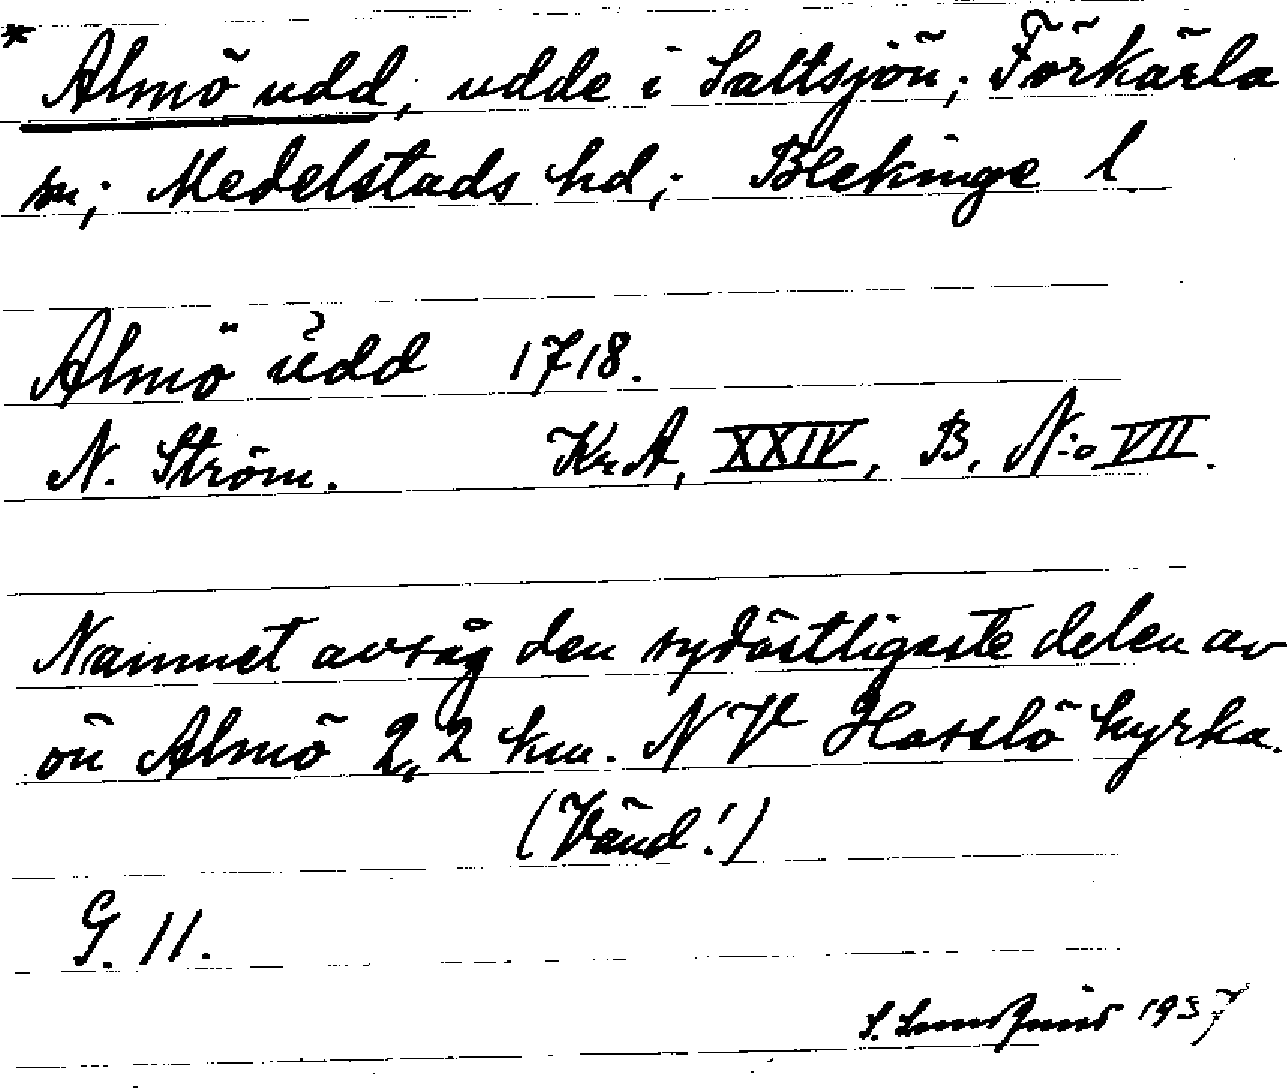 * Almö udd; udde i Saltsjön; Förkärla
sn; Medelstads hd; Blekinge l
Almö üdd 1718.
N. Ström. Kr.A, XXIV, B. N:o VII.
Namnet avsåg den sydöstligaste delen av
ön Almö 2,2 km. NV Hasslö kyrka.
(Vänd!)
G. 11.
S. 1937